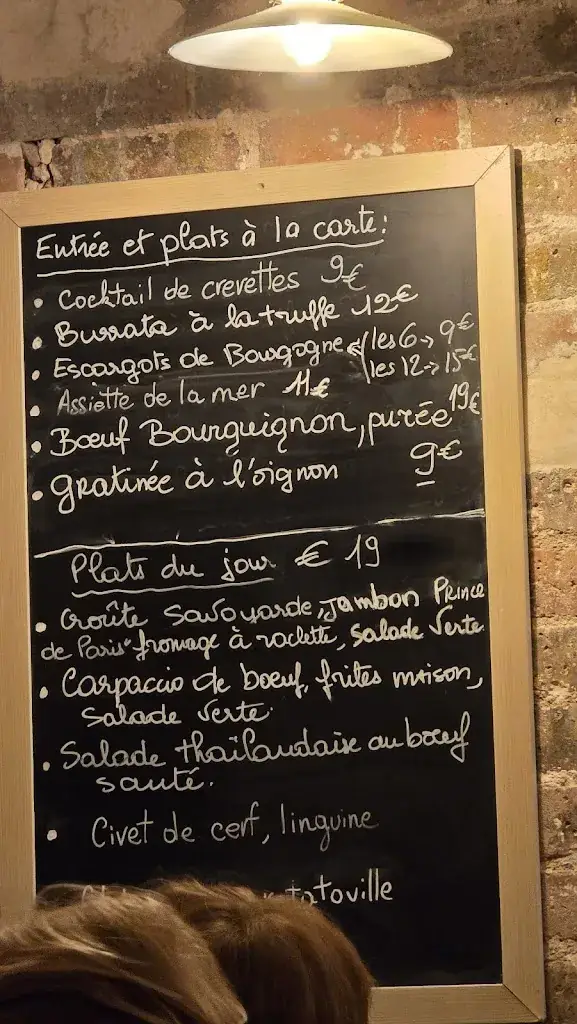 Entrée et plats à la carte:
• Cocktail de crevettes 9€
• Burrata à la truffe 12€
• Escargots de Bourgogne les 6 → 9€
les 12 → 15€
• Assiette de la mer 11€
• Bœuf Bourguignon, purée 19€
• gratinée à l'oignon 9€
Plats du jour € 19
• Croûte Savoyarde, Jambon Prince
de Paris" fromage à raclette, Salade Verte.
• Carpaccio de boeuf, frites maison,
Salade Verte.
• Salade thaïlandaise au bœuf
sauté.
• Civet de cerf, linguine